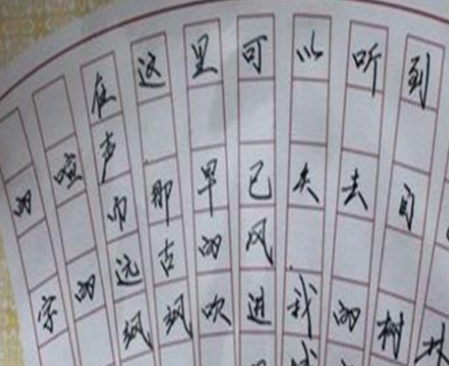 在这里可以听到
的喧声
那早已失去自
字的远古的风
吹进我的树林